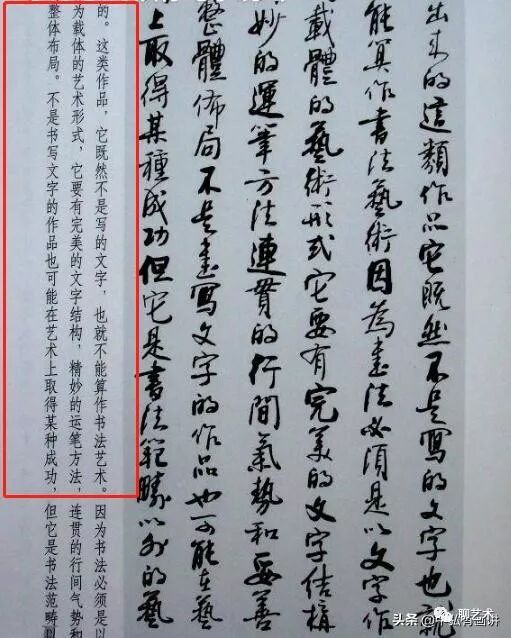 出来的這類作品它既然不是寫的文字也
能算作書法藝術因為書法必須是以文字作
載體的藝術形式它要有完美的文字结構
妙的運筆方法連貫的行間氣勢和妥善
整體佈局不是書寫文字的作品也可能在藝
上取得某種成功但它是書法範疇以外的藝
的。这类作品，它既然不是写的文字，也就不能算作书法艺术。因为书法必须是以
为载体的艺术形式，它要有完美的文字结构，精妙的运笔方法，连贯的行间气势和
整体布局。不是书写文字的作品也可能在艺术上取得某种成功，但它是书法范畴
聊艺术
头条